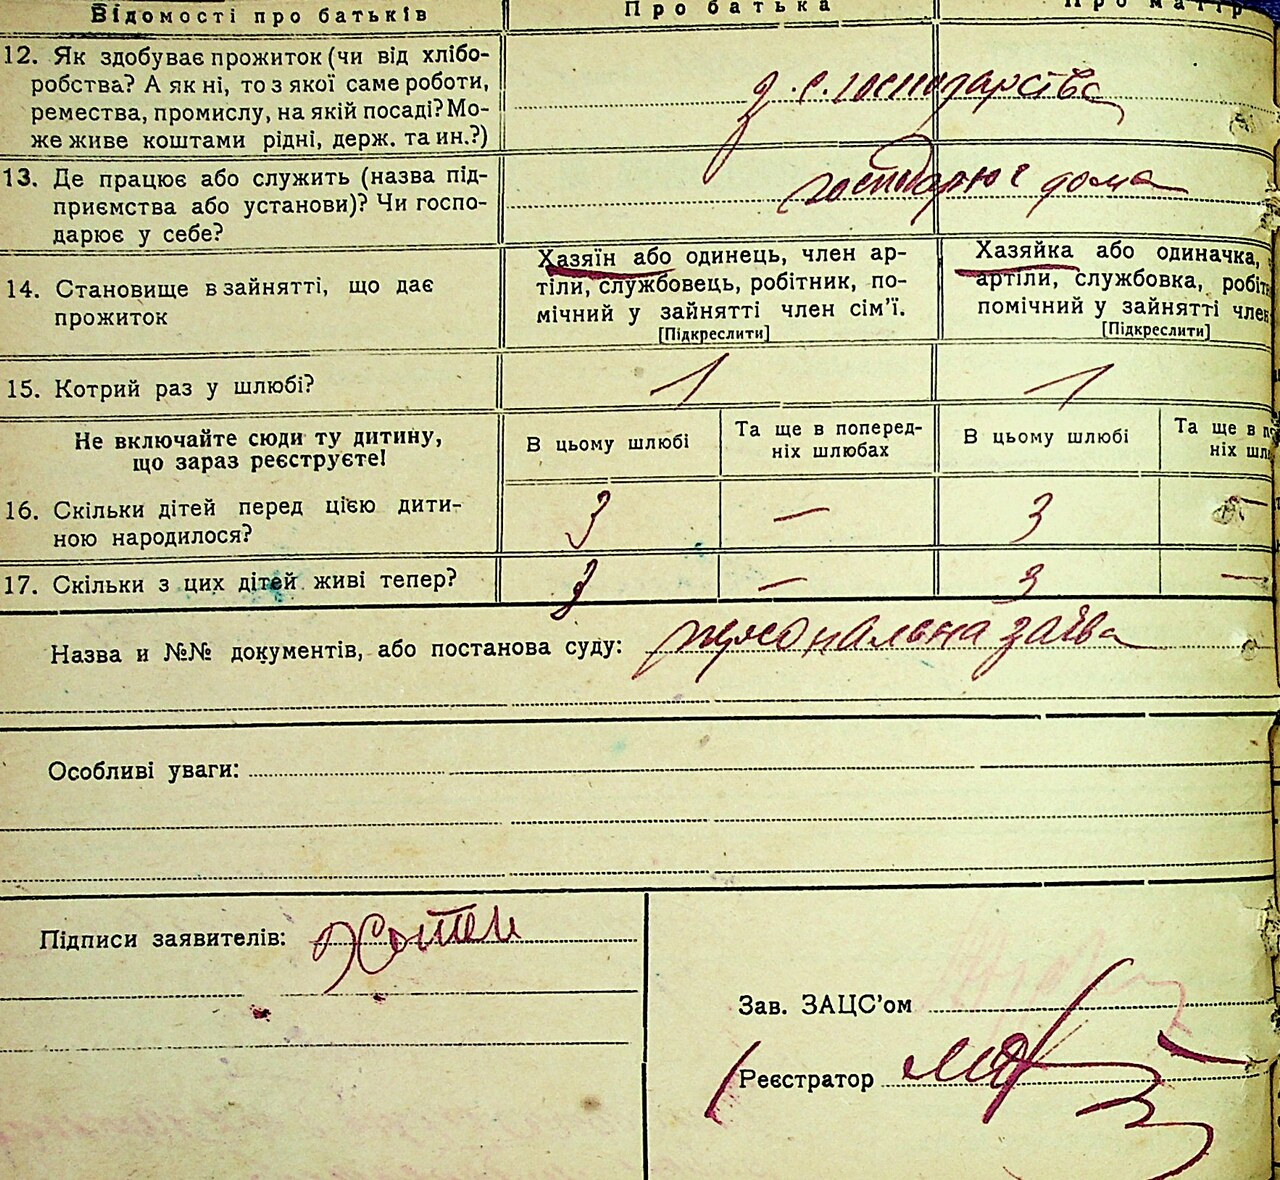 Відомості про батьків
Про батька
Про матір
12. Як здобуває прожиток (чи від хлібо-
робства? А як ні, то з якої саме роботи,
ремества, промислу, на якій посаді? Мо-
же живе коштами рідні, держ. та ин.?)
з с. господарства
13. Де працює або служить (назва під-
приємства або установи)? Чи госпо-
дарює у себе?
господарює дома
14. Становище в зайнятті, що дає
прожиток
Хазяїн або одинець, член ар-
тіли, службовець, робітник, по-
мічний у зайнятті член сім’ї.
[Підкреслити]
Хазяйка або одиначка,
артіли, службовка, робіт
помічний у зайнятті член
[Підкреслити]
15. Котрий раз у шлюбі?
1
1
Не включайте сюди ту дитину,
що зараз реєструєте!
В цьому шлюбі
Та ще в поперед-
ніх шлюбах
В цьому шлюбі
Та ще в по
ніх шлю
16. Скільки дітей перед цією дити-
ною народилося?
3 — 3 —
17. Скільки з цих дітей живі тепер?
3 — 3 —
Назва и №№ документів, або постанова суду: персональна заява
Особливі уваги:
Підписи заявителів:
Зав. ЗАЦС’ом
Реєстратор